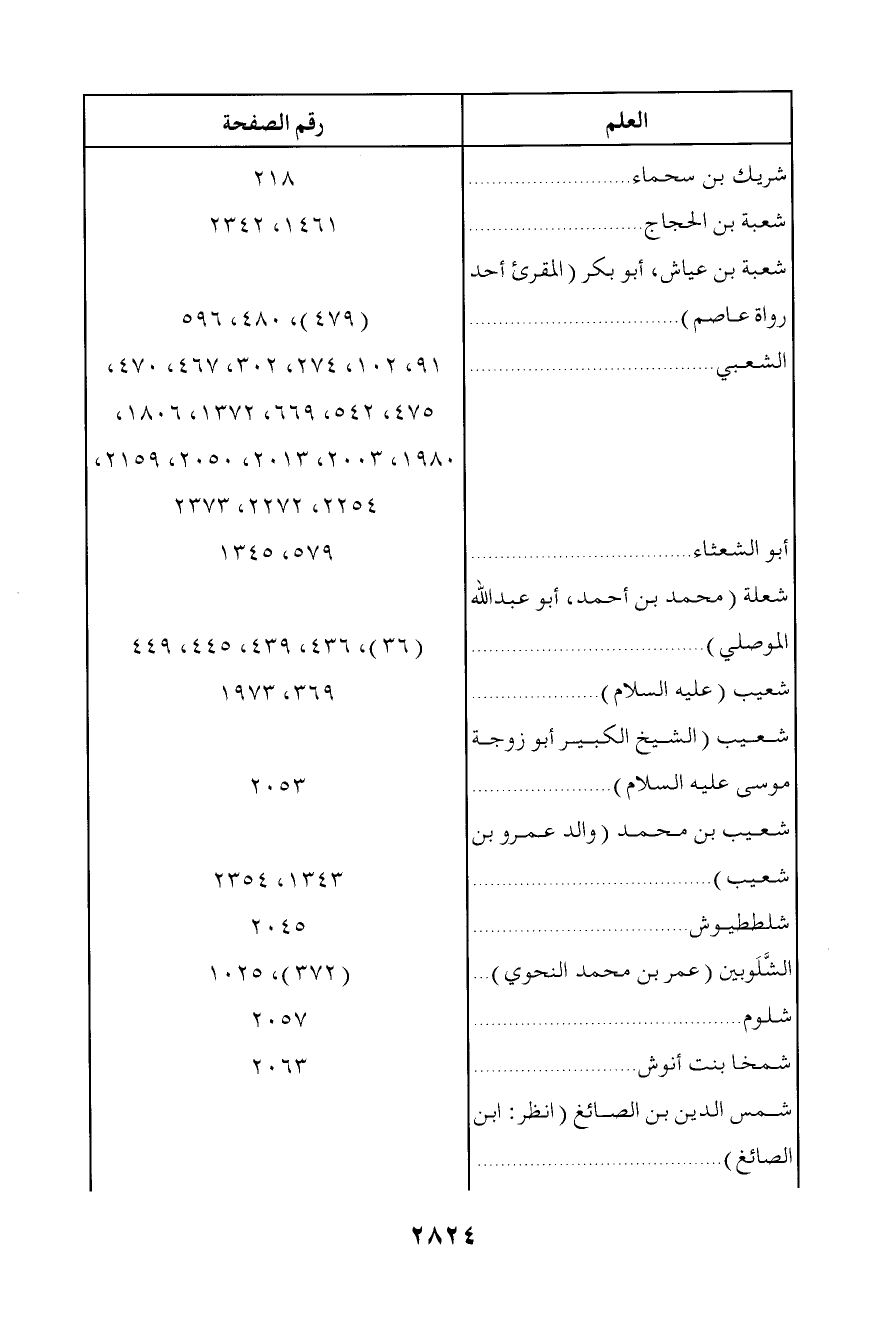 العلم رقم الصفحة
شريك بن سحماء ٢١٨
شعبة بن الحجاج ١٤٦١، ٢٣٤٢
شعبة بن عياش، أبو بكر (المقرئ أحد
رواة عاصم) (٤٧٩)، ٤٨٠، ٥٩٦
الشعبي ٩١، ١٠٢، ٢٧٤، ٣٠٢، ٤٦٧، ٤٧٠،
٤٧٥، ٥٤٢، ٦٦٩، ١٣٧٢، ١٨٠٦،
١٩٨٠، ٢٠٠٣، ٢٠١٣، ٢٠٥٠، ٢١٥٩،
٢٢٥٤، ٢٢٧٢، ٢٣٧٣
أبو الشعثاء ٥٧٩، ١٣٤٥
شعلة (محمد بن أحمد، أبو عبدالله
الموصلي) (٣٦)، ٤٣٦، ٤٣٩، ٤٤٥، ٤٤٩
شعيب (عليه السلام) ٣٦٩، ١٩٧٣
شعيب (الشيخ الكبير أبو زوجة
موسى عليه السلام) ٢٠٥٣
شعيب بن محمد (والد عمرو بن
شعيب) ١٣٤٣، ٢٣٥٤
شلططيوش ٢٠٤٥
الشَّلَوبين (عمر بن محمد النحوي) (٣٧٢)، ١٠٢٥
شلوم ٢٠٥٧
شمخا بنت أنوش ٢٠٦٣
شمس الدين بن الصائغ (انظر: ابن
الصائغ)
٢٨٢٤